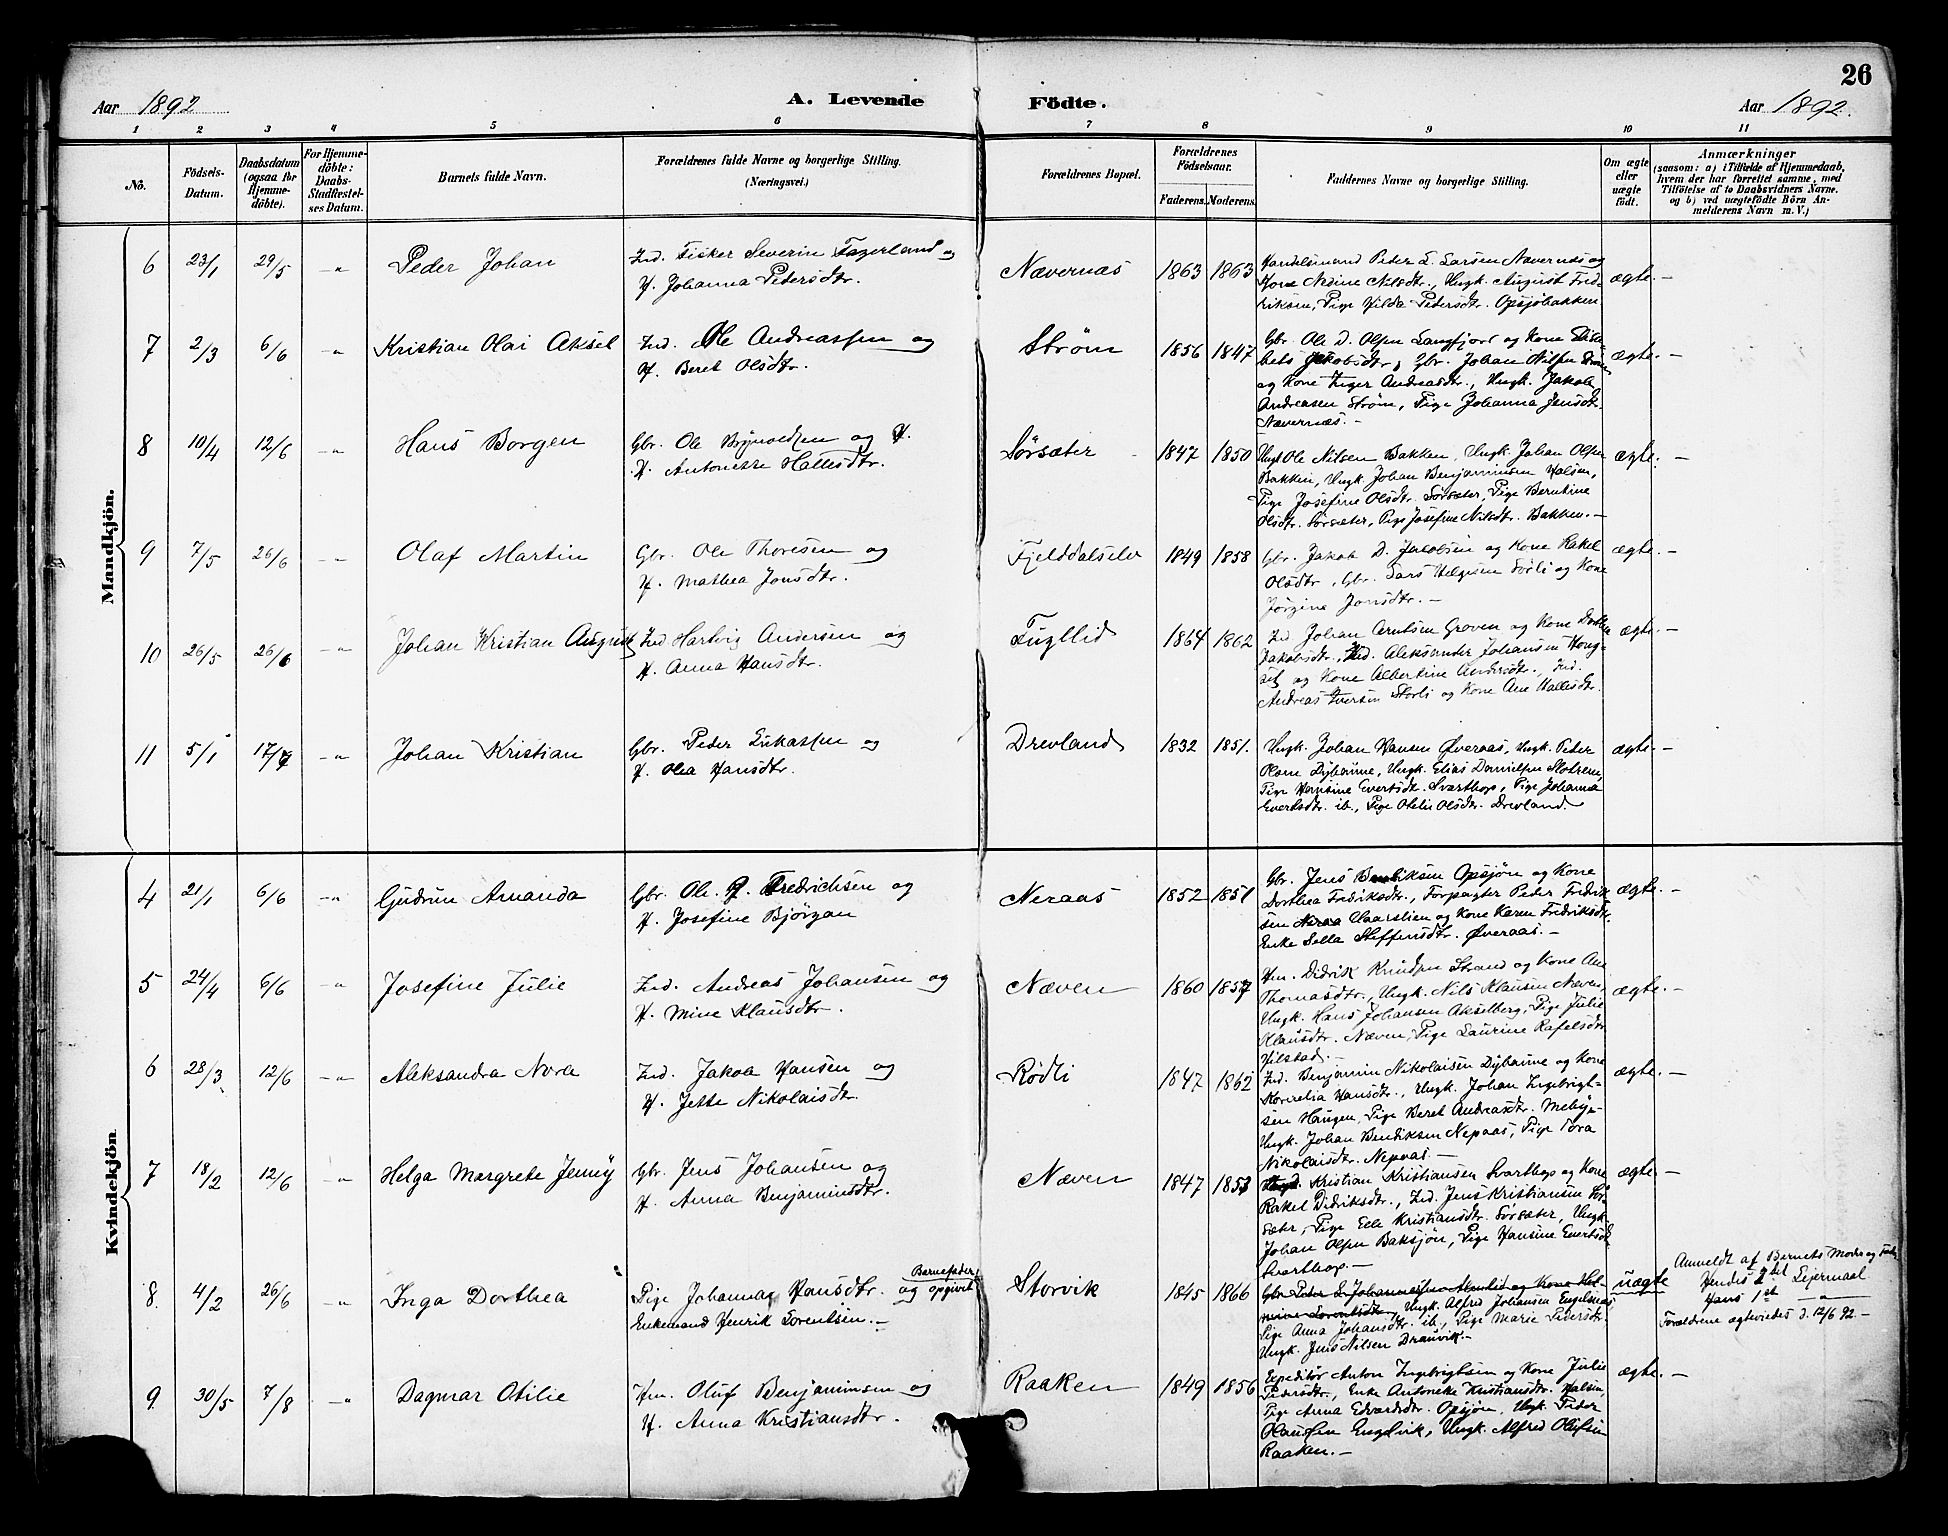 26
Aar 1892 A. Levende Födte. Aar 1892.
1 2 3 4 5 6 7 8 9 10 11
No. Födsels-Datum. Daabsdatum (ogsaa for Hjemme-döbte). For Hjemme-döbte: Daabs-Stadfestel-ses Datum. Barnets fulde Navn. Forældrenes fulde Navne og borgerlige Stilling. (Næringsvei.) Forældrenes Bopæl. Forældrenes Födselsaar. Faderens. Moderens. Faddernes Navne og borgerlige Stilling. Om ægte eller uægte födt. Anmærkninger (saasom: a) i Tilfælde af Hjemmedaab, hvem der har forrettet samme, med Tilföielse af to Daabsvidners Navne. og b) ved uægtefödte Börn An-melderens Navn m. V.)
Mandkjön.
6 23/1 29/5 -"- Peder Johan Ind. Fisker Severin Fagerland og
H. Johanna Pedersdtr. Nævernæs 1863 1863 Handelsmand Peder L. Larsen Nævernæs og
Kone Nesine Nilsdtr., Ungk. August Fred-
riksen, Pige Hilda Pedersdtr. Opsjøbakken ægte.-
7 2/3 6/6 -"- Kristian Olai Aksel Ind. Ole Andreassen og
H. Beret Olsdtr. Strøm 1856 1847 Gbr. Ole D. Olsen Langfjord og Kone Elisa-
bets Jakobsdtr, Gbr. Johan Nilsen Strøm
og Kone Inger Andreasdtr., Ungk. Jakob
Andreasen Strøm, Pige Johanna Jensdtr.
Nævernæs.- ægte.-
8 10/4 12/6 -"- Hans Borgen Gbr. Ole Brynvoldsen og H.
H. Antonette Hallesdtr. Sørsæter 1847 1850 Ungk Ole Nilsen Bakken, Ungk. Johan Olsen
Bakken, Ungk. Johan Benjaminsen Halsen,
Pige Josefine Olsdtr. Sørsæter, Pige Berntine
Olsdtr. Sørsæter, Pige Josefine Nilsdtr. Bakken.- ægte. -
9 7/5 26/6 -"- Olaf Martin Gbr. Ole Thoresen og
H. Mathea Jonsdtr. Fjelddalselv 1849 1858 Gbr. Jakob D. Jacobsen og Kone Rakel
Olsdtr, Gbr. Lars Helgesen Sørli og Kone
Jørgine Jonsdtr.- ægte.-
10 26/5 26/6 -"- Johan Kristian August Ind Hartvig Andersen og
H. Anna Hansdtr. Fugllid 1864 1862 Ind Johan Arntsen Groven og Kone Dorthea
Jakobsdtr., Ind. Aleksander Johansen Hong-
set og Kone Albertine Andersdtr., Ind.
Andreas Iversen Storli og Kone Ane Hallesdtr. ægte.-
11 5/1 17/7 -"- Johan Kristian Gbr. Peder Lukassen og
H. Olea Hansdtr. Drevland 1832 1851. Ungk. Johan Hansen Øveraas, Ungk. Peter
Olsen Dybaune, Ungk. Elias Danielsen Slotrem,
Pige Hansine Evertsdtr. Svarthop, Pige Johanna
Evertsdtr. ib., Pige Otelie Olsdtr. Drevland. ægte.-
Kvindekjön
4 21/1 6/6 -"- Gudrun Amanda Gbr. Ole P. Fredrichsen og
H. Josefine Bjørgan Neraas 1852 1851 Gbr. Jens Bendiksen Opsjøn og Kone
Dorthea Fredriksdtr., Forpagter Peder Fredrik-
sen Neraa Haarslien og Kone Karen Fredriksdtr.
Enke Sella Steffensdtr. Øveraas.- ægte.-
5 24/4 6/6 -"- Josefine Julie Ind. Andreas Johansen og
H. Mine Klausdtr. Næven 1860 1857 Hm. Didrik Knudsen Strand og Kone Ane
Thomasdtr., Ungk. Nils Klausen Næven,
Ungk. Hans Johansen Akselberg, Pige Julie
Klausdtr. Næven, Pige Laurine Rafelsdtr
Hilstad.- ægte.-
6 28/3 12/6 -"- Aleksandra Nora Ind. Jakob Hansen og
H. Jette Nikolaisdtr. Rødli 1847 1862 Ind. Benjamin Nikolaisen Dybaune og Kone
Kornelia Hansdtr., Ungk. Johan Ingebrigt-
sen Haugen, Pige Beret Andreasdtr. Meby-
Ungk. Johan Bendiksen Nepaas, Pige Tora
Nikolaisdtr. Nepaas.- ægte.-
7 18/2 12/6 -"- Helga Margrete Jenny Gbr. Jens Johansen og
H. Anna Benjaminsdtr. Næven 1847 1853 Kristian Kristiansen Svarthop og Kone
Rakel Didriksdtr., Ind. Jens Kristiansen Sør-
sæter, Pige Elle Kristiansdtr. Sørsæter, Ungk.
Johan Olsen Baksjøn, Pige Hansine Evertsdtr
Svarthop.- ægte.-
8. 4/2 26/6 -"- Inga Dorthea Pige Johanna Hansdtr. og Barnefader opgivet
Enkemand Henrik Lorentsen.- Storvik 1845 1866 Gbr. Peter L. Johannessen Almlid og Kone Hel-
mine Lorentsdtr, Ungk. Alfred Johansen Engelsnes
Pige Anna Johansdtr. ib., Pige Marie Pedersdtr.
Ungk. Jens Nilsen Drauvik.- uægte Anmeldt af Barnets Moder og Fader
Hendes 2det Lejermaal
Hans 1st -"-
Forældrene ægteviedes d. 12/6 92-
9. 30/5 7/8 -"- Dagmar Otilie Hm. Oluf Benjaminsen og
H. Anna Kristiansdtr. Raaken 1849 1856 Expeditør Anton Ingebrigtsen og Kone Julie
Pedersdtr., Enke Antoneke Kristiansdtr. Halsen,
Pige Anna Edvardsdtr. Opsjøn, Ungk. Peder
Olaussen Engelvik, Ungk. Alfred Olufsen
Raaken.- ægte.-